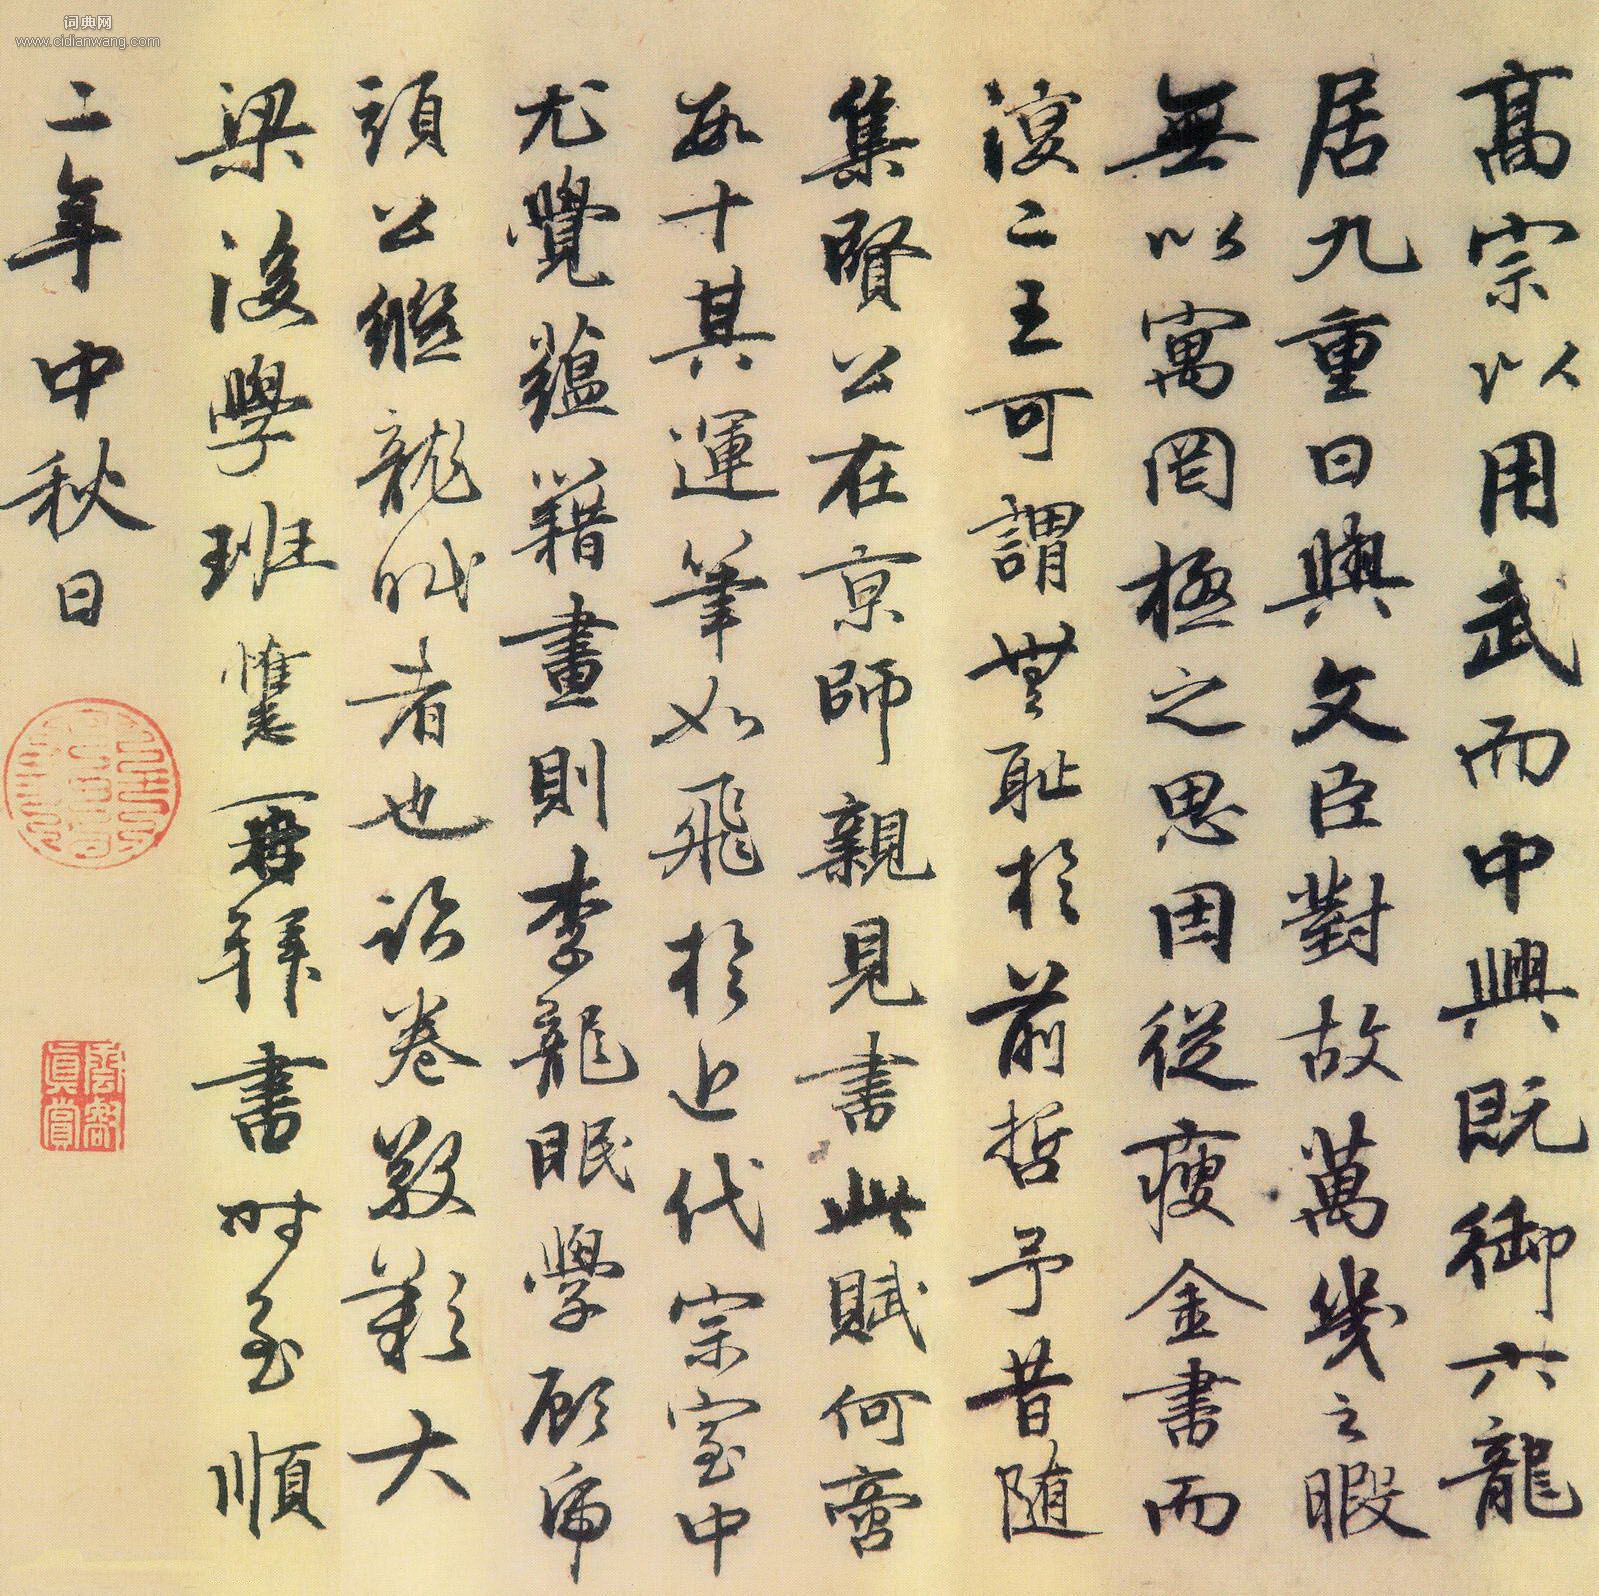 词典网
www.cidianwang.com
高宗以用武而中興既御六龍
居九重日與文臣對故萬幾之暇
無以寓罔極之思因從瘦金書而
復二王可謂無耻於前哲予昔随
集賢公在京師親見書此賦何啻
数十其運筆如飛於近代宗室中
尤覺藴籍畫則李龍眠學顧虎
頭公縱龍眠者也詒卷敬歎大
梁後學班惟志再拜書時至順
二年中秋日
真賞